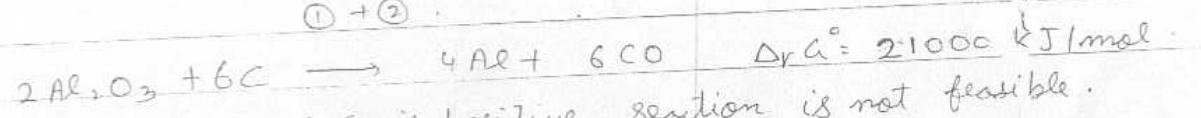 ① + ②
2 Al₂O₃ + 6C ⟶ 4 Al + 6 CO ΔrG° = 2.1000 kJ/mol.
reaction is not feasible.